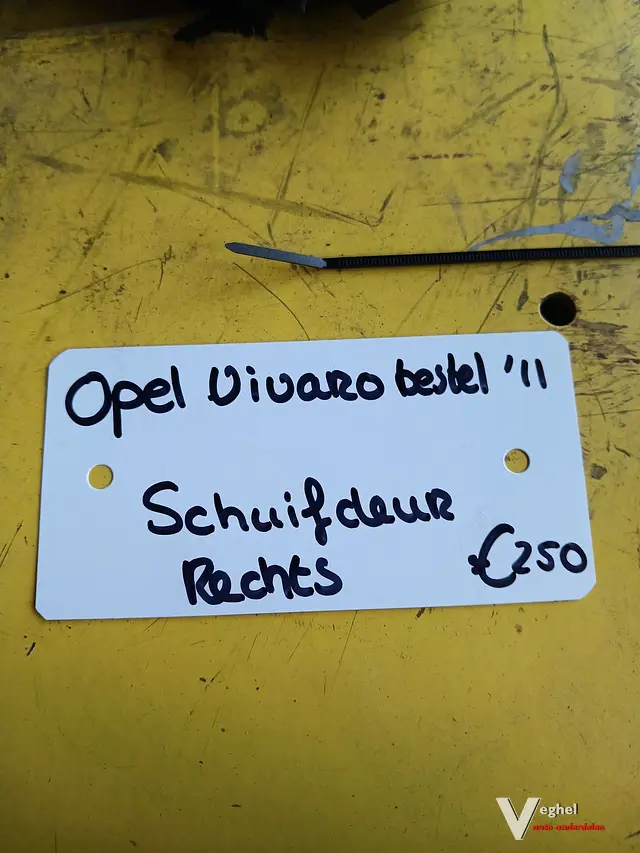 Opel Vivaro bestel '11
Schuifdeur
Rechts
€250
Veghel
auto onderdelen